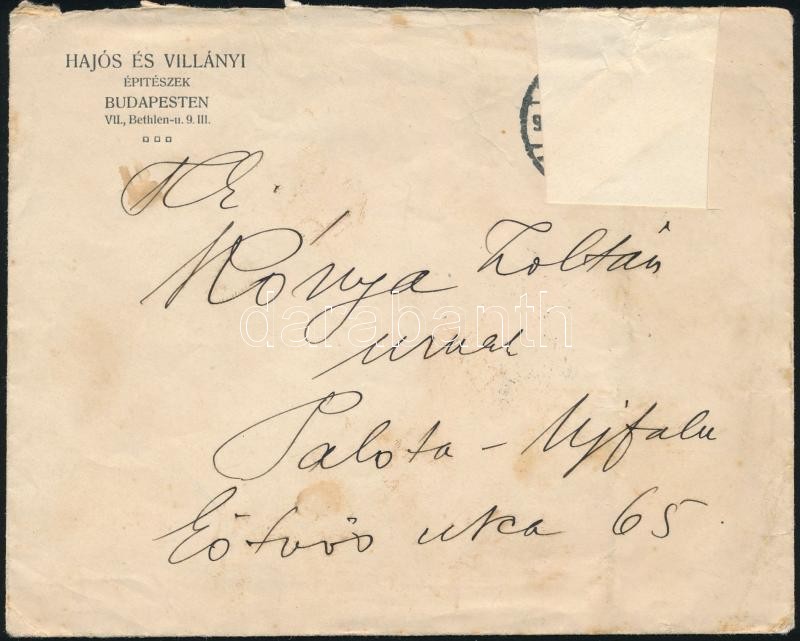 HAJÓS ÉS VILLÁNYI
ÉPITÉSZEK
BUDAPESTEN
VII., Bethlen-u. 9. III.
9
Kónya Zoltán
darabanth
urnak
Palota-Ujfalu
Eötvös utca 65